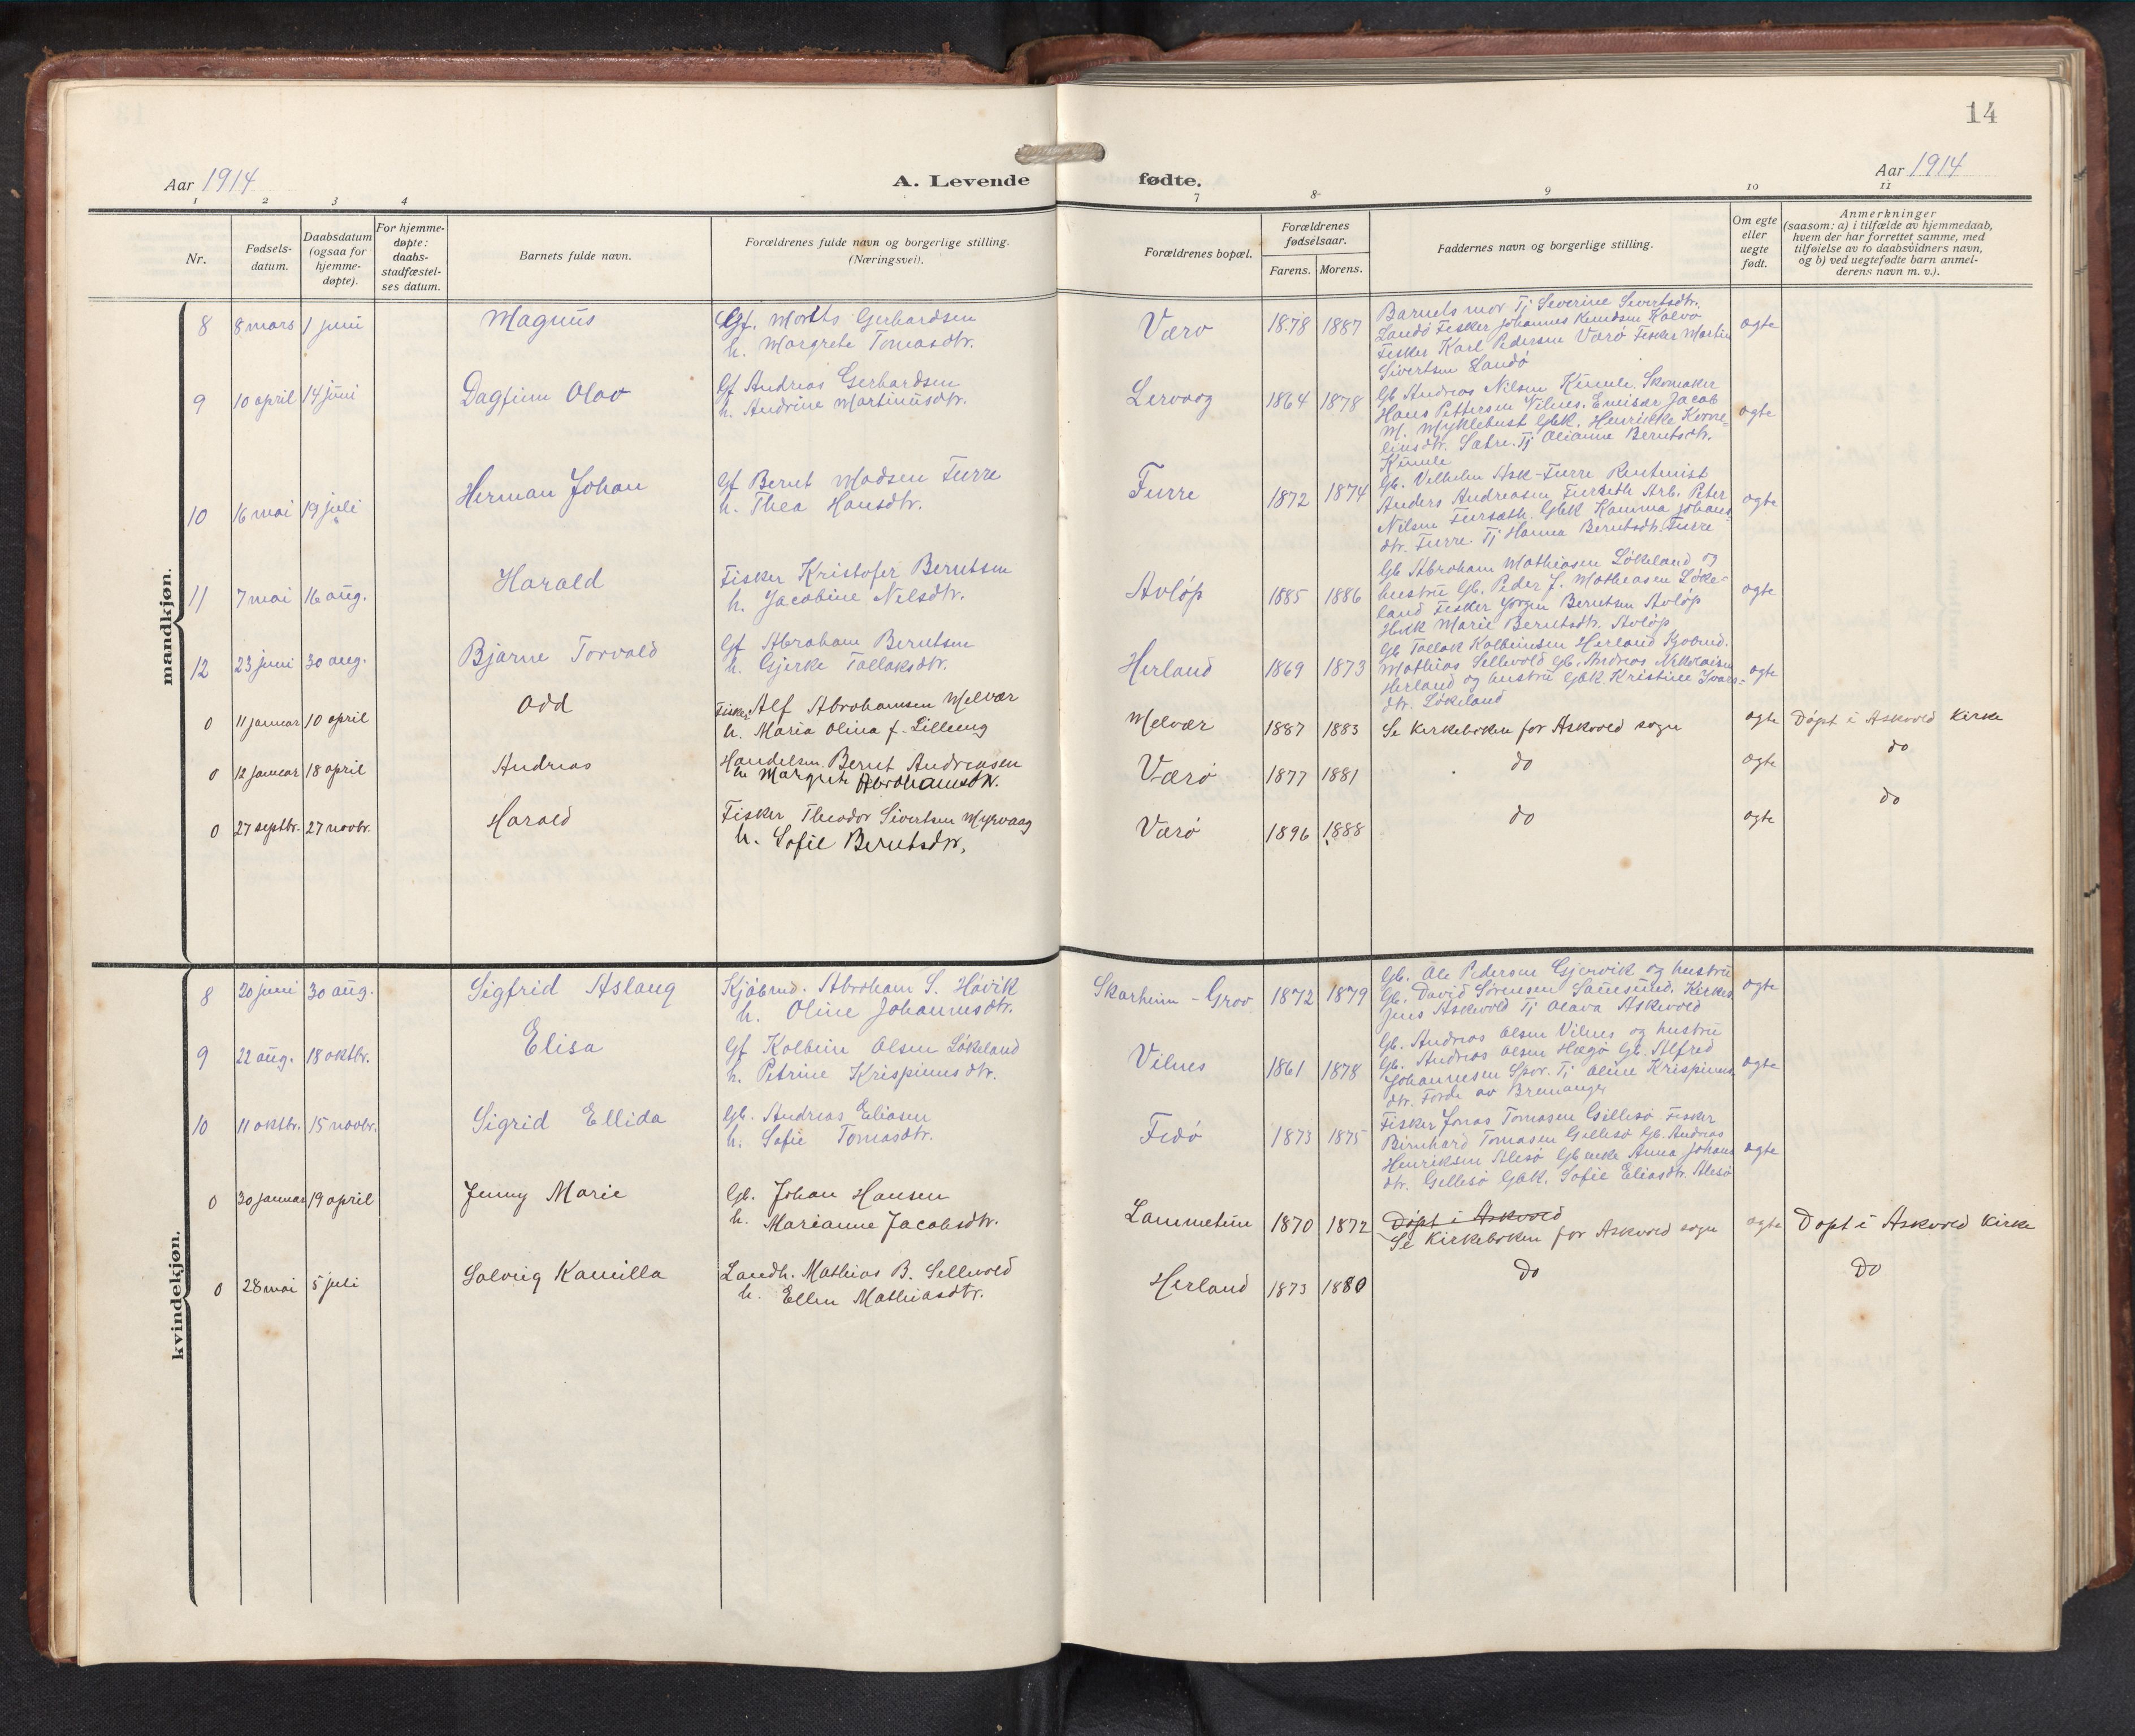 14
Aar 1914
A. Levende fødte.
Aar 1914
1 2 3 4 7 8 9 10 11
Nr.
Fødsels-
datum.
Daabsdatum
(ogsaa for
hjemme-
døpte).
For hjemme-
døpte:
daabs-
stadfæstel-
ses datum.
Barnets fulde navn.
Forældrenes fulde navn og borgerlige stilling.
(Næringsvei).
Forældrenes bopæl.
Forældrenes
fødselsaar.
Farens. Morens.
Faddernes navn og borgerlige stilling.
Om egte
eller
uegte
født.
Anmerkninger
(saasom: a) i tilfælde av hjemmedaab,
hvem der har forrettet samme, med
tilføielse av to daabsvidners navn,
og b) ved uegtefødte barn anmel-
derens navn m. v.).
mandkjøn.
8 8 mars 1 juni Magnus
Gf. Gerhardsen
h. Margrete Tomasdtr.
Værø 1878 1887
Barnets mor Tj Severine Sivertsdtr.
Landø Fisker Johannes Knudsen Kalvø
Fisker Karl Pedersen Værø Fisker Martin
Sivertsen Landø
egte
9 10 april 14 juni Dagfinn Olav
Gf Andreas Gerhardsen
h. Andrine Martinusdtr.
Lervaag 1864 1878
Gb Andreas Nilsen Kumle. Skomaker
Hans Pettersen Vilnes. Emisær Jacob
M. Myklebust Gbk. Henrikke Korne-
liusdtr. Sætre. Tj Olianne Berntsdtr.
Kumle
egte
10 16 mai 19 juli Herman Johan
Gf Bernt Madsen Furre
h. Thea Hansdtr.
Furre 1872 1874
Gb. Vilhelm Ask-Furre Rentenist
Anders Andreasen Furseth Arb. Peter
Nilsen Fursæth. Gbk Kamma Johans-
dtr. Furre. Tj Hanna Berntsdtr. Furre
egte
11 7 mai 16 aug. Harald
Fisker Kristofer Berntsen
h. Jacobine Nelsdtr.
Avløp 1885 1886
Gb Abraham Mathiasen Løkeland og
hustru Gb. Peder J. Mathiasen Løke-
land Fisker Jørgen Berntsen Avløp
Marie Berntsdtr. Avløp
egte
12 23 juni 30 aug. Bjarne Torvald
Gf Abraham Berntsen
h. Gjerke Tollaksdtr.
Herland 1869 1873
Gb Tollak Kolbeinsen Herland Kjøbmd.
Mathias Sellevold Gb. Andreas Nikolaisen
Herland og hustru Gbk. Kristine Ivars-
dtr. Løkeland
egte
0 11 januar 10 april Odd
Fisker Alf Abrahamsen Melvær
h. Maria Olina f. Lilleeng
Melvær 1887 1883 Se kirkeboken for Askvold sogn egte Døpt i Askvold Kirke
0 12 januar 18 april Andreas
Handelsm. Bernt Andreasen
h. Margrete Abrahamsdtr.
Værø 1877 1881 do egte do
0 27 septbr. 27 novbr. Harald
Fisker Theodor Sivertsen Myrvaag
h. Sofie Berntsdtr.
Værø 1896 1888 do egte do
kvindekjøn.
8 20 juni 30 aug. Sigfrid Aslaug
Kjøbmd. Abraham S. Høvik
h. Oline Johannesdtr.
Skarheim - Grov 1872 1879
Gb. Ole Pedersen Gjervik og hustru
Gb. David Sørensen Sauesund. Kirkes
Askevold Tj Olava Askevold
egte
9 22 aug. 18 oktbr. Elisa
Gf Kolbein Olsen Løkeland
h. Petrine Krispinusdtr.
Vilnes 1861 1878
Gb. Andreas Olsen Vilnes og hustru
Gb. Andreas Olsen Hægø Gb. Alfred
Johannesen Spor. Tj Oline Krispinus-
dtr. Førde av Bremanger
egte
10 11 oktbr. 15 novbr. Sigrid Ellida
Gb. Andreas Eliasen
h. Sofie Tomasdtr.
Fedø 1873 1875
Fisker Jonas Tomasen Gillesø Fisker
Bernhard Tomasen Gillesø Gb. Andreas
Henriksen Alesø Gbenke Anna Johans
dtr. Gillesø Gbk. Sofie Eliasdtr. Alesø
egte
0 30 januar 19 april Jenny Marie
Gb. Johan Hansen
h. Marianne Jacobsdtr.
Lammetun 1870 1872
Døpt i Askvold
Se Kirkeboken for Askvold sogn
egte Døpt i Askvold Kirke
0 28 mai 5 juli Solveig Kamilla
Landh. Mathias B. Sellevold
h. Ellen Mathiasdtr.
Herland 1873 1880 do do